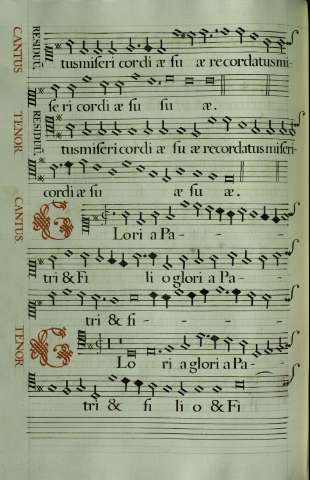 CANTUS
RESIDUŪ.
tusmiseri cordi æ su æ recordatus mi-
se ri cordi æ su su æ.
TENOR
RESIDUŪ.
tusmiseri cordi æ su æ recordatus miseri-
cordi æ su æ su æ.
CANTUS
G Lori a Pa - -
tri & Fi li o glori a Pa - -
tri & fi - - -
TENOR
G Lo ri a glori a Pa-
tri & fi li o & Fi